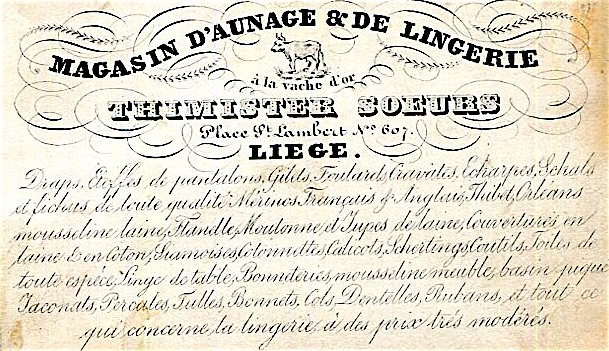 MAGASIN D'AUNAGE & DE LINGERIE
à la vache d'or
THIMISTER SOEURS
Place St. Lambert No. 607.
LIEGE.
Draps, Étoffes de pantalons, Gilets, Foulards, Cravates, Echarpes, Schals
et fichus de toute qualité Mérinos Français & Anglais, Thibet, Orléans
mousseline laine, Flanelle, Moutonne et Jupes de laine, Couvertures en
laine & en Coton, Siamoises, Cotonnettes, Calicots, Schertings, Coutils, Toiles de
toute espèce, Linge de table, Bonneteries, mousseline meuble, basin piqué
Jaconats, Percales, Tulles, Bonnets, Cols, Dentelles, Rubans, et tout ce
qui concerne la lingerie, à des prix très modérés.